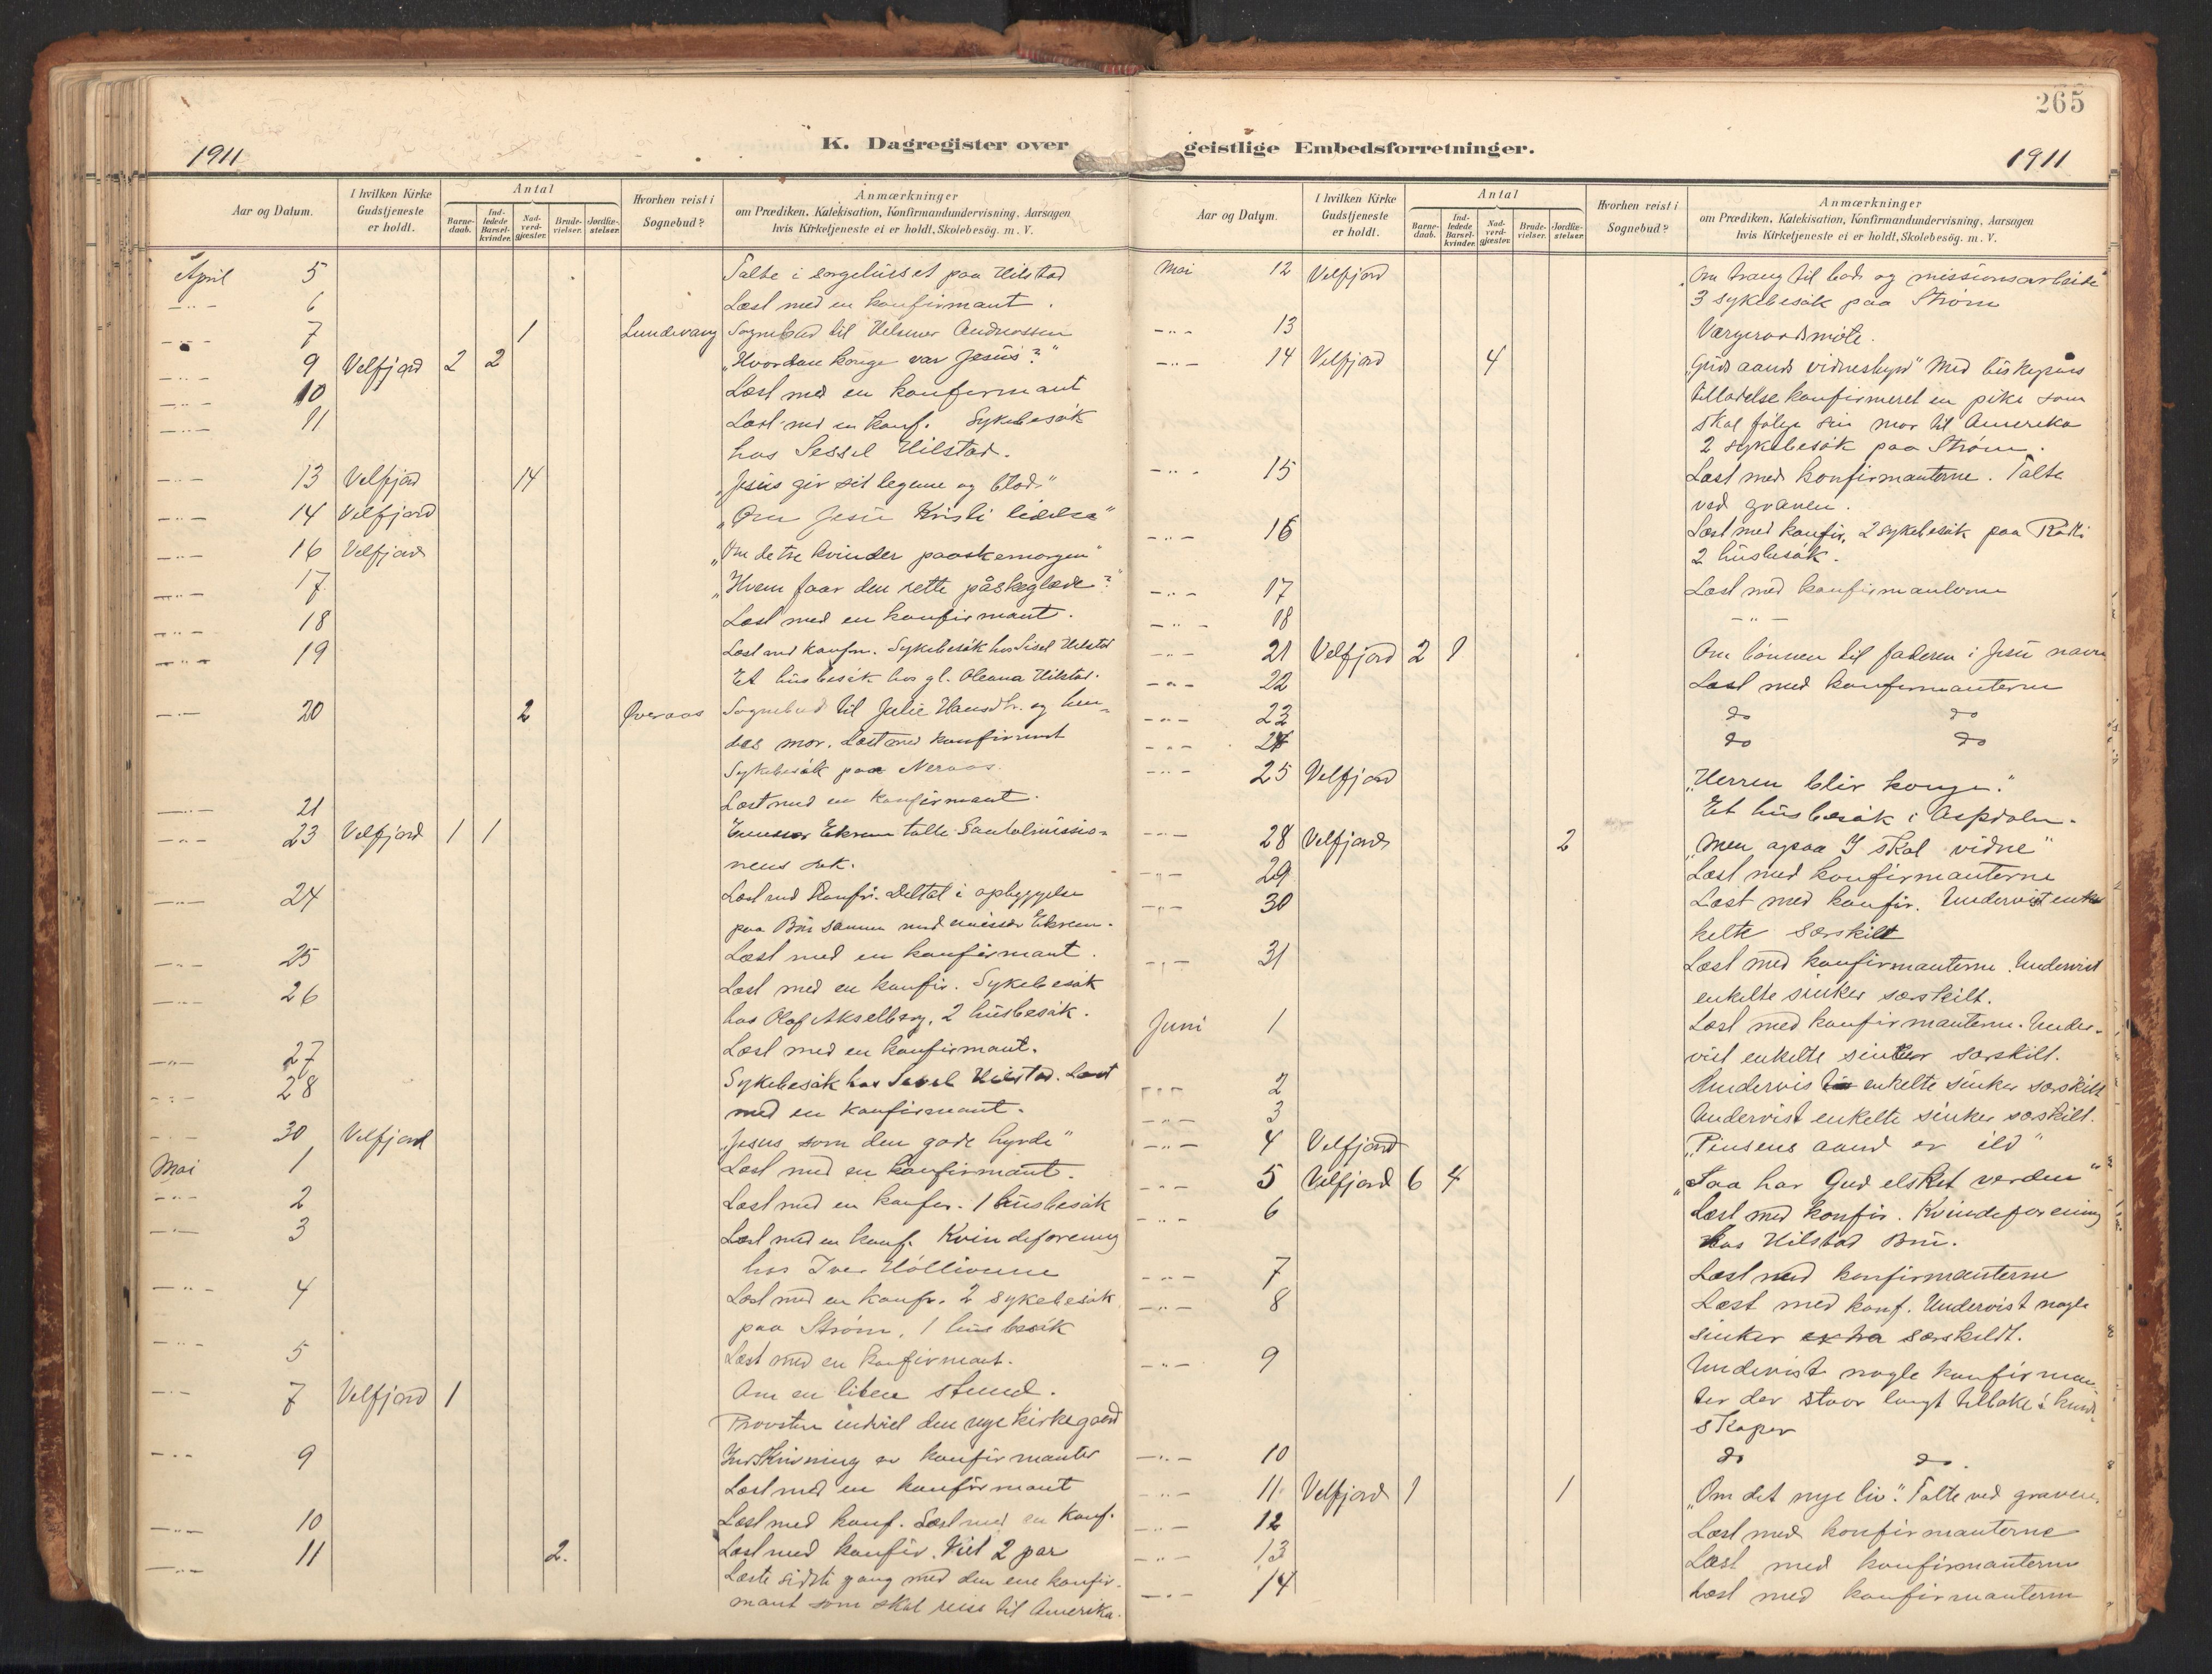 265
K. Dagregister over geistlige Embedsforretninger.
1911
1911
Aar og Datum.
I hvilken Kirke Gudstjeneste er holdt.
Antal
Barne-daab.
Ind-ledede Barsel-kvinder.
Nad-verd-gjæster.
Brude-vielser.
Jordfæ-stelser.
Hvorhen reist i Sognebud?
Anmærkninger
om Prædiken, Katekisation, Konfirmandundervisning, Aarsagen
hvis Kirketjeneste ei er holdt, Skolebesög. m. V.
April 5 Talte i sørgehuset paa Hilstad
-"- 6 Læst med en konfirmant.
-"- 7 1 Lundevang Sognebud til Helmer Andreassen
-"- 9 Velfjord 2 2 "Hvordan konge var Jesus?"
-"- 10 Læst med en konfirmant
-"- 11 Læst med en konf. Sykebesøk
hos Sessel Hilstad.
-"- 13 Velfjord 14 "Jesus gir sit legeme og blod"
-"- 14 Velfjord "Om Jesu Kristi lidelse"
-"- 16 Velfjord "Om de tre kvinder paaskemorgen"
-"- 17 "Hvem faar den rette påskeglæde?"
-"- 18 Læst med en konfirmant.
-"- 19 Læst med konfir. Sykebesøk hos Sisel Hilstad
Et husbesøk hos gl. Oleana Hilstad.
-"- 20 2 Øveraas Sognebud til Julie Hansdtr. og hen-
des mor. Læst med konfirmant
Sykebesøk paa Neraas.
-"- 21 Læst med en konfirmant.
-"- 23 Velfjord 1 1 Ekrem talte Santalmissio-
nens sak.
-"- 24 Læst med Konfir. Deltat i opbyggelse
paa Bui sammen med Ekrem.
-"- 25 Læst med en konfirmant.
-"- 26 Læst med en konfir. Sykebesøk
hos Olaf Akselberg, 2 husbesøk.
-"- 27 Læst med en konfirmant.
-"- 28 Sykebesøk hos Sessel Hilstad. Læst
med en konfirmant.
-"- 30 Velfjord "Jesus som den gode hyrde"
Mai 1 Læst med en konfirmant.
-"- 2 Læst med en konfir. 1 husbesøk
-"- 3 Læst med en konf. Kvindeforening
hos Iver
-"- 4 Læst med en konfr. 2 sykebesøk
paa Strøm, 1 husbesøk
-"- 5 Læst med en konfirmant.
-"- 7 Velfjord 1 Om en liten stund.
Provsten indviet den nye kirkegaard
-"- 9 Indskrivning av konfirmanter
Læst med en konfirmant
-"- 10 Læst med konf. Læst med en konf.
-"- 11 2. Læst med konfir. Viet 2 par
-"- Læste sidste gang med den ene konfir-
mant som skal reise til Amerika.
Aar og Datum.
I hvilken Kirke Gudstjeneste er holdt.
Antal
Barne-daab.
Ind-ledede Barsel-kvinder.
Nad-verd-gjæster.
Brude-vielser.
Jordfæ-stelser.
Hvorhen reist i Sognebud?
Anmærkninger
om Prædiken, Katekisation, Konfirmandundervisning, Aarsagen
hvis Kirketjeneste ei er holdt, Skolebesög. m. V.
Mai 12 Velfjord "Om trang til bod og missionsarbeide"
3 sykebesøk paa Strøm
-"- 13 Værgeraadsmøte.
-"- 14 Velfjord 4 "Guds aands vidnesbyrd" Med biskopens
tilladelse konfirmeret en pike som
skal følge sin mor til Amerika
2 sykebesøk paa Strøm.
-"- 15 Læst med konfirmanterne. Talte
ved graven.
-"- 16 Læst med konfir. 2 sykebesøk paa
2 husbesøk.
-"- 17 Læst med konfirmanterne
-"- 18 -"-
-"- 21 Velfjord 2 1 Om bønnen til faderen i Jesu navn
-"- 22 Læst med konfirmanterne
-"- 23 do do
-"- 24 do do
-"- 25 Velfjord "Herren blir konge."
Et husbesøk i Aspdalen.
-"- 28 Velfjord 2 "Men ogsaa I skal vidne"
-"- 29 Læst med konfirmanterne
-"- 30 Læst med konfir. Undervist en-
kelte særskilt
-"- 31 Læst med konfirmanterne. Undervist
enkelte sinker særskilt.
Juni 1 Læst med konfirmanterne. Under-
vist enkelte sinker særskilt.
-"- 2 Undervist enkelte sinker særskilt
-"- 3 Undervist enkelte sinker særskilt.
-"- 4 Velfjord "Pinsens aand er ild"
-"- 5 Velfjord 6 4 "Saa har Gud elsket verden"
-"- 6 Læst med konfir. Kvindeforening
hos Hilstad Bui.
-"- 7 Læst med konfirmanterne
-"- 8 Læst med konf. Undervist nogle
sinker extra særskildt.
-"- 9 Undervist nogle konfirman-
ter der staar langt tilbake i kund-
skaper
-"- 10 do do.
-"- 11 Velfjord 1 1 "Om det nye liv". Talte ved graven.
-"- 12 Læst med konfirmanterne
-"- 13 Læst med konfirmanterne
-"- 14 Læst med konfirmanterne